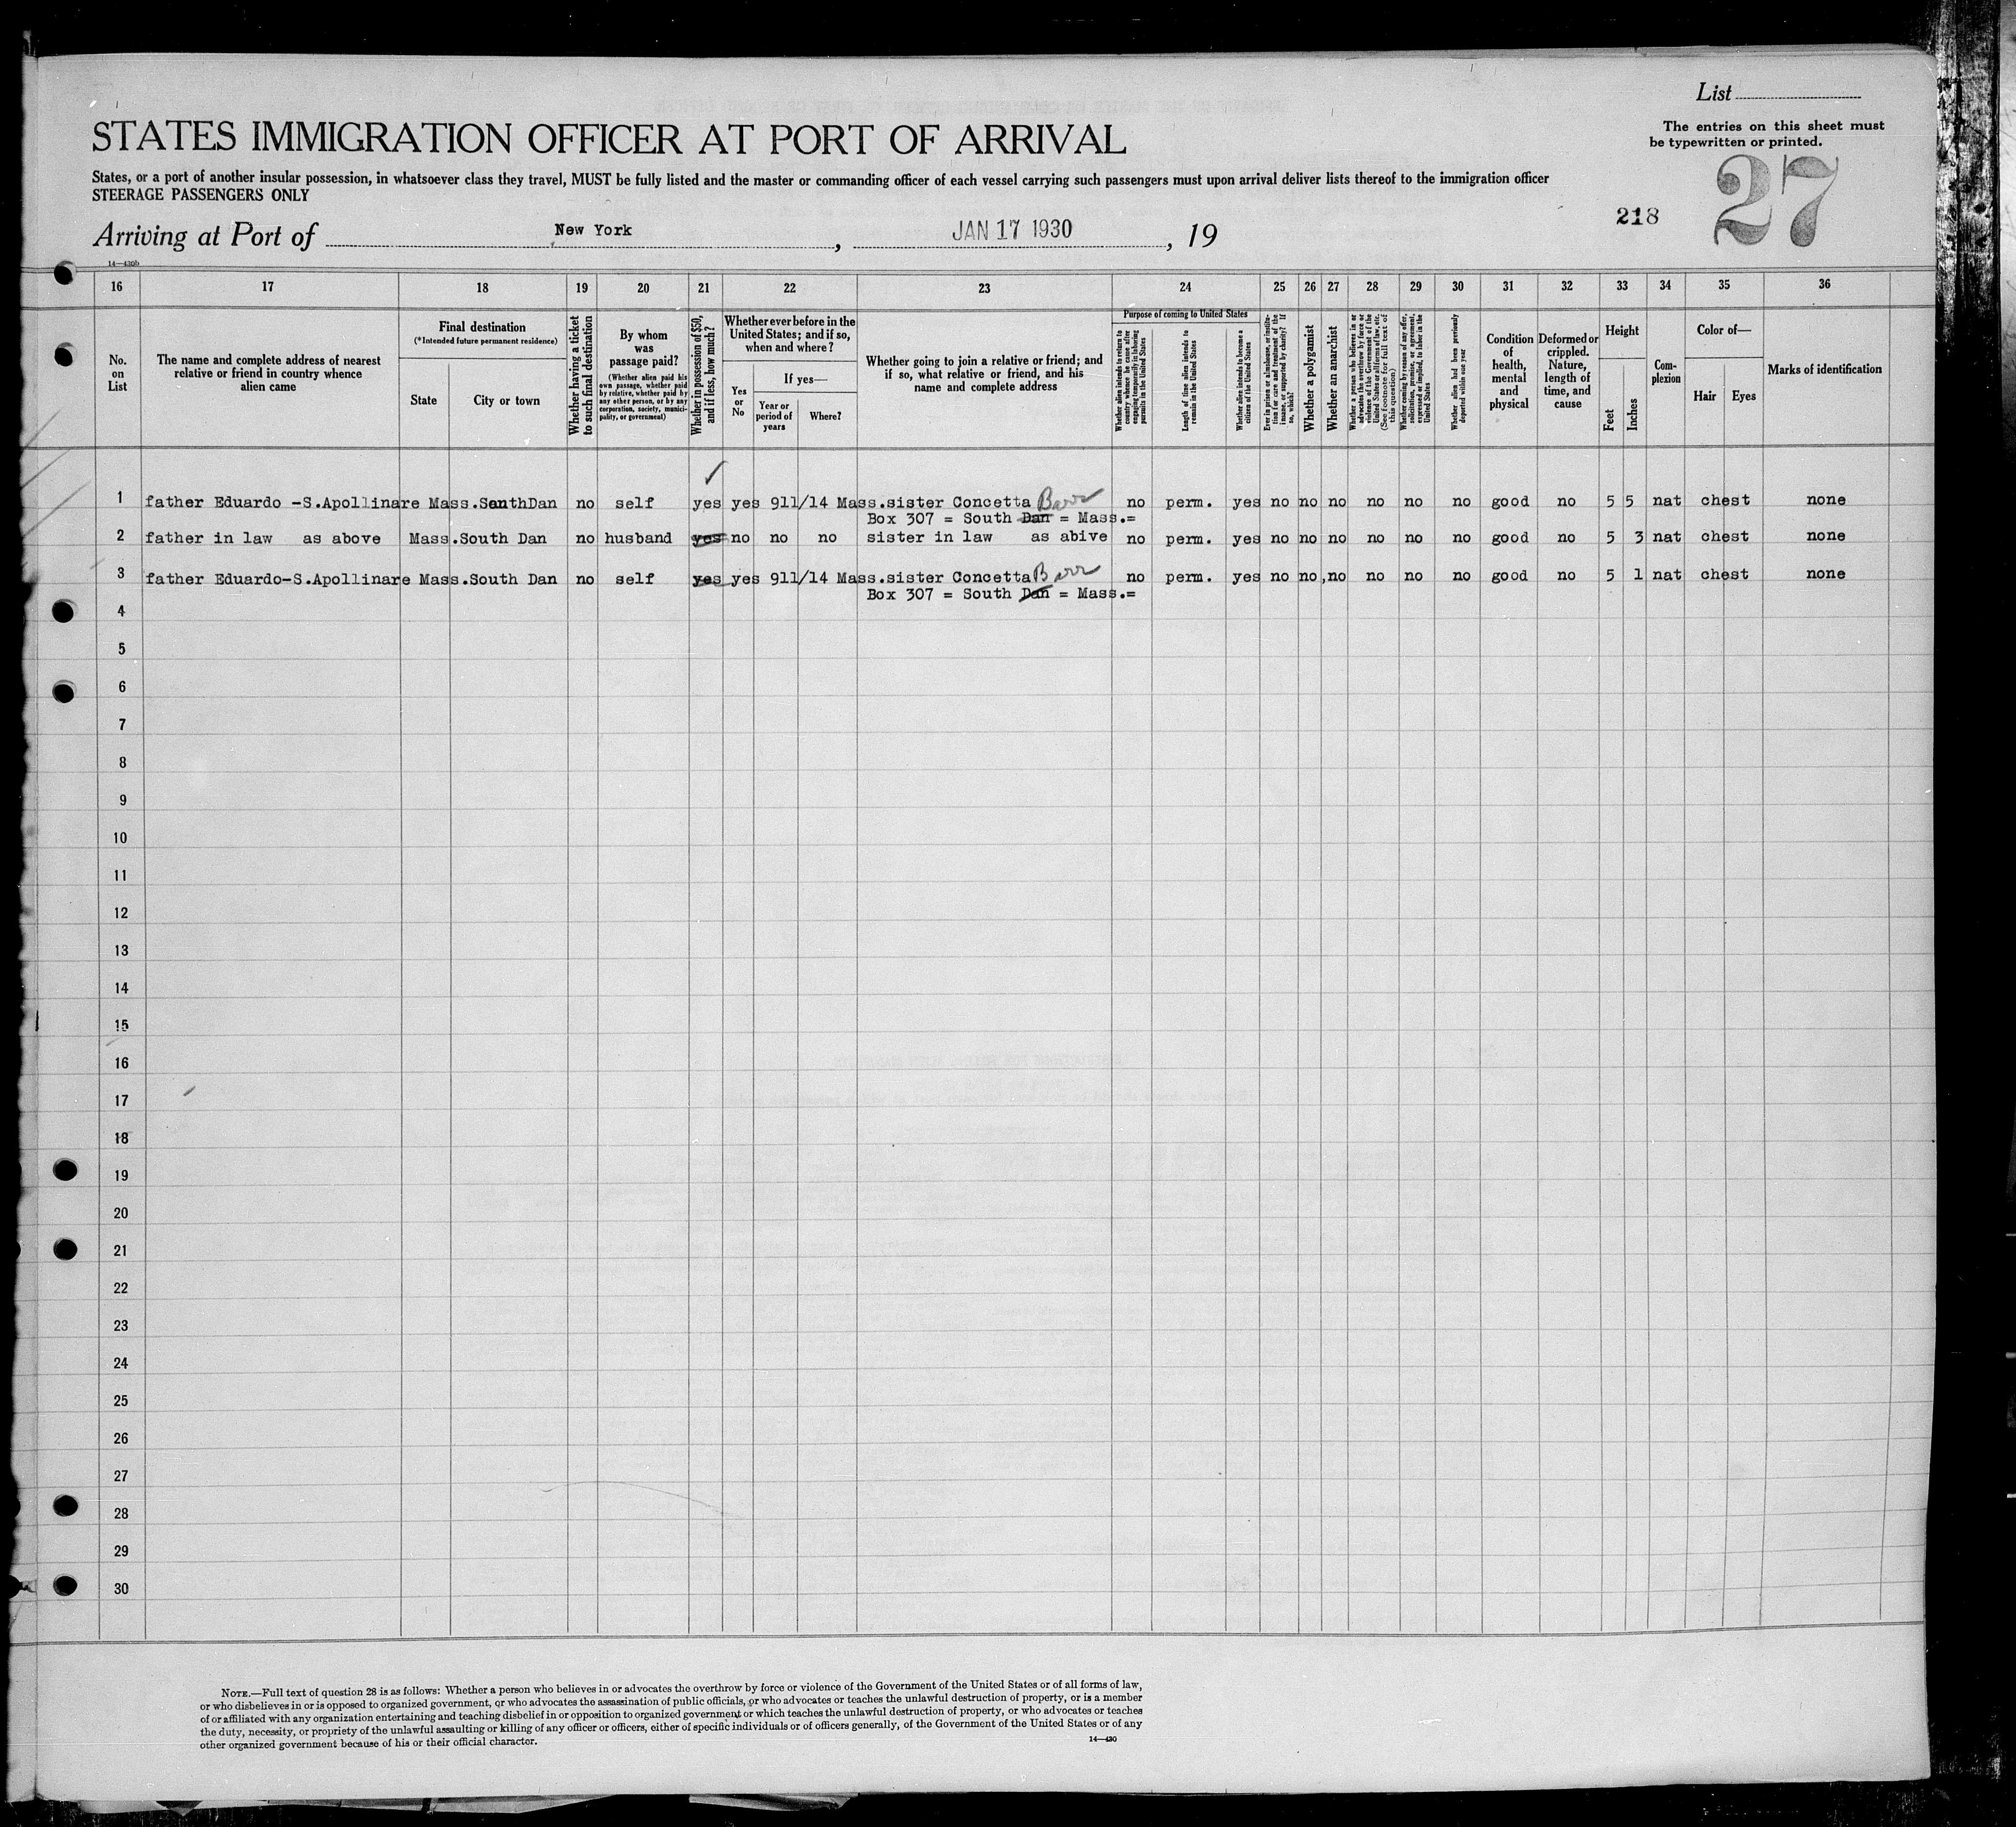 List
The entries on this sheet must
be typewritten or printed.
STATES IMMIGRATION OFFICER AT PORT OF ARRIVAL
27
States, or a port of another insular possession, in whatsoever class they travel, MUST be fully listed and the master or commanding officer of each vessel carrying such passengers must upon arrival deliver lists thereof to the immigration officer
STEERAGE PASSENGERS ONLY
218
Arriving at Port of New York, JAN 17 1930, 19
14—430b
16 17 18 19 20 21 22 23 24 25 26 27 28 29 30 31 32 33 34 35 36
No. on List
The name and complete address of nearest relative or friend in country whence alien came
Final destination
(*Intended future permanent residence)
State
City or town
Whether having a ticket to such final destination
By whom was passage paid?
(Whether alien paid his own passage, whether paid by relative, whether paid by any other person, or by any corporation, society, municipality, or government)
Whether in possession of $50, and if less, how much?
Whether ever before in the United States; and if so, when and where?
Yes or No
If yes—
Year or period of years
Where?
Whether going to join a relative or friend; and if so, what relative or friend, and his name and complete address
Purpose of coming to United States
Whether alien intends to return to country whence he came after engaging temporarily in laboring pursuits in the United States
Length of time alien intends to remain in the United States
Whether alien intends to become a citizen of the United States
Ever in prison or almshouse, or institution for care and treatment of the insane, or supported by charity? If so, which?
Whether a polygamist
Whether an anarchist
Whether a person who believes in or advocates the overthrow by force or violence of the Government of the United States or all forms of law, etc. (See footnote for full text of this question)
Whether coming by reason of any offer, solicitation, promise, or agreement, expressed or implied, to labor in the United States
Whether alien had been previously deported within one year
Condition of health, mental and physical
Deformed or crippled. Nature, length of time, and cause
Height
Feet
Inches
Complexion
Color of—
Hair
Eyes
Marks of identification
1 father Eduardo -S.Apollinare Mass.SouthDan no self yes yes 911/14 Mass.sister Concetta Barr no perm. yes no no no no no no good no 5 5 nat chest none
Box 307 = South Dan = Mass.=
2 father in law as above Mass.South Dan no husband yes no no no sister in law as abive no perm. yes no no no no no no good no 5 3 nat chest none
3 father Eduardo-S.Apollinare Mass.South Dan no self yes yes 911/14 Mass.sister Concetta Barr no perm. yes no no,no no no no good no 5 1 nat chest none
Box 307 = South Dan = Mass.=
4
5
6
7
8
9
10
11
12
13
14
15
16
17
18
19
20
21
22
23
24
25
26
27
28
29
30
NOTE.—Full text of question 28 is as follows: Whether a person who believes in or advocates the overthrow by force or violence of the Government of the United States or of all forms of law,
or who disbelieves in or is opposed to organized government, or who advocates the assassination of public officials, or who advocates or teaches the unlawful destruction of property, or is a member
of or affiliated with any organization entertaining and teaching disbelief in or opposition to organized government or which teaches the unlawful destruction of property, or who advocates or teaches
the duty, necessity, or propriety of the unlawful assaulting or killing of any officer or officers, either of specific individuals or of officers generally, of the Government of the United States or of any
other organized government because of his or their official character.
14—430